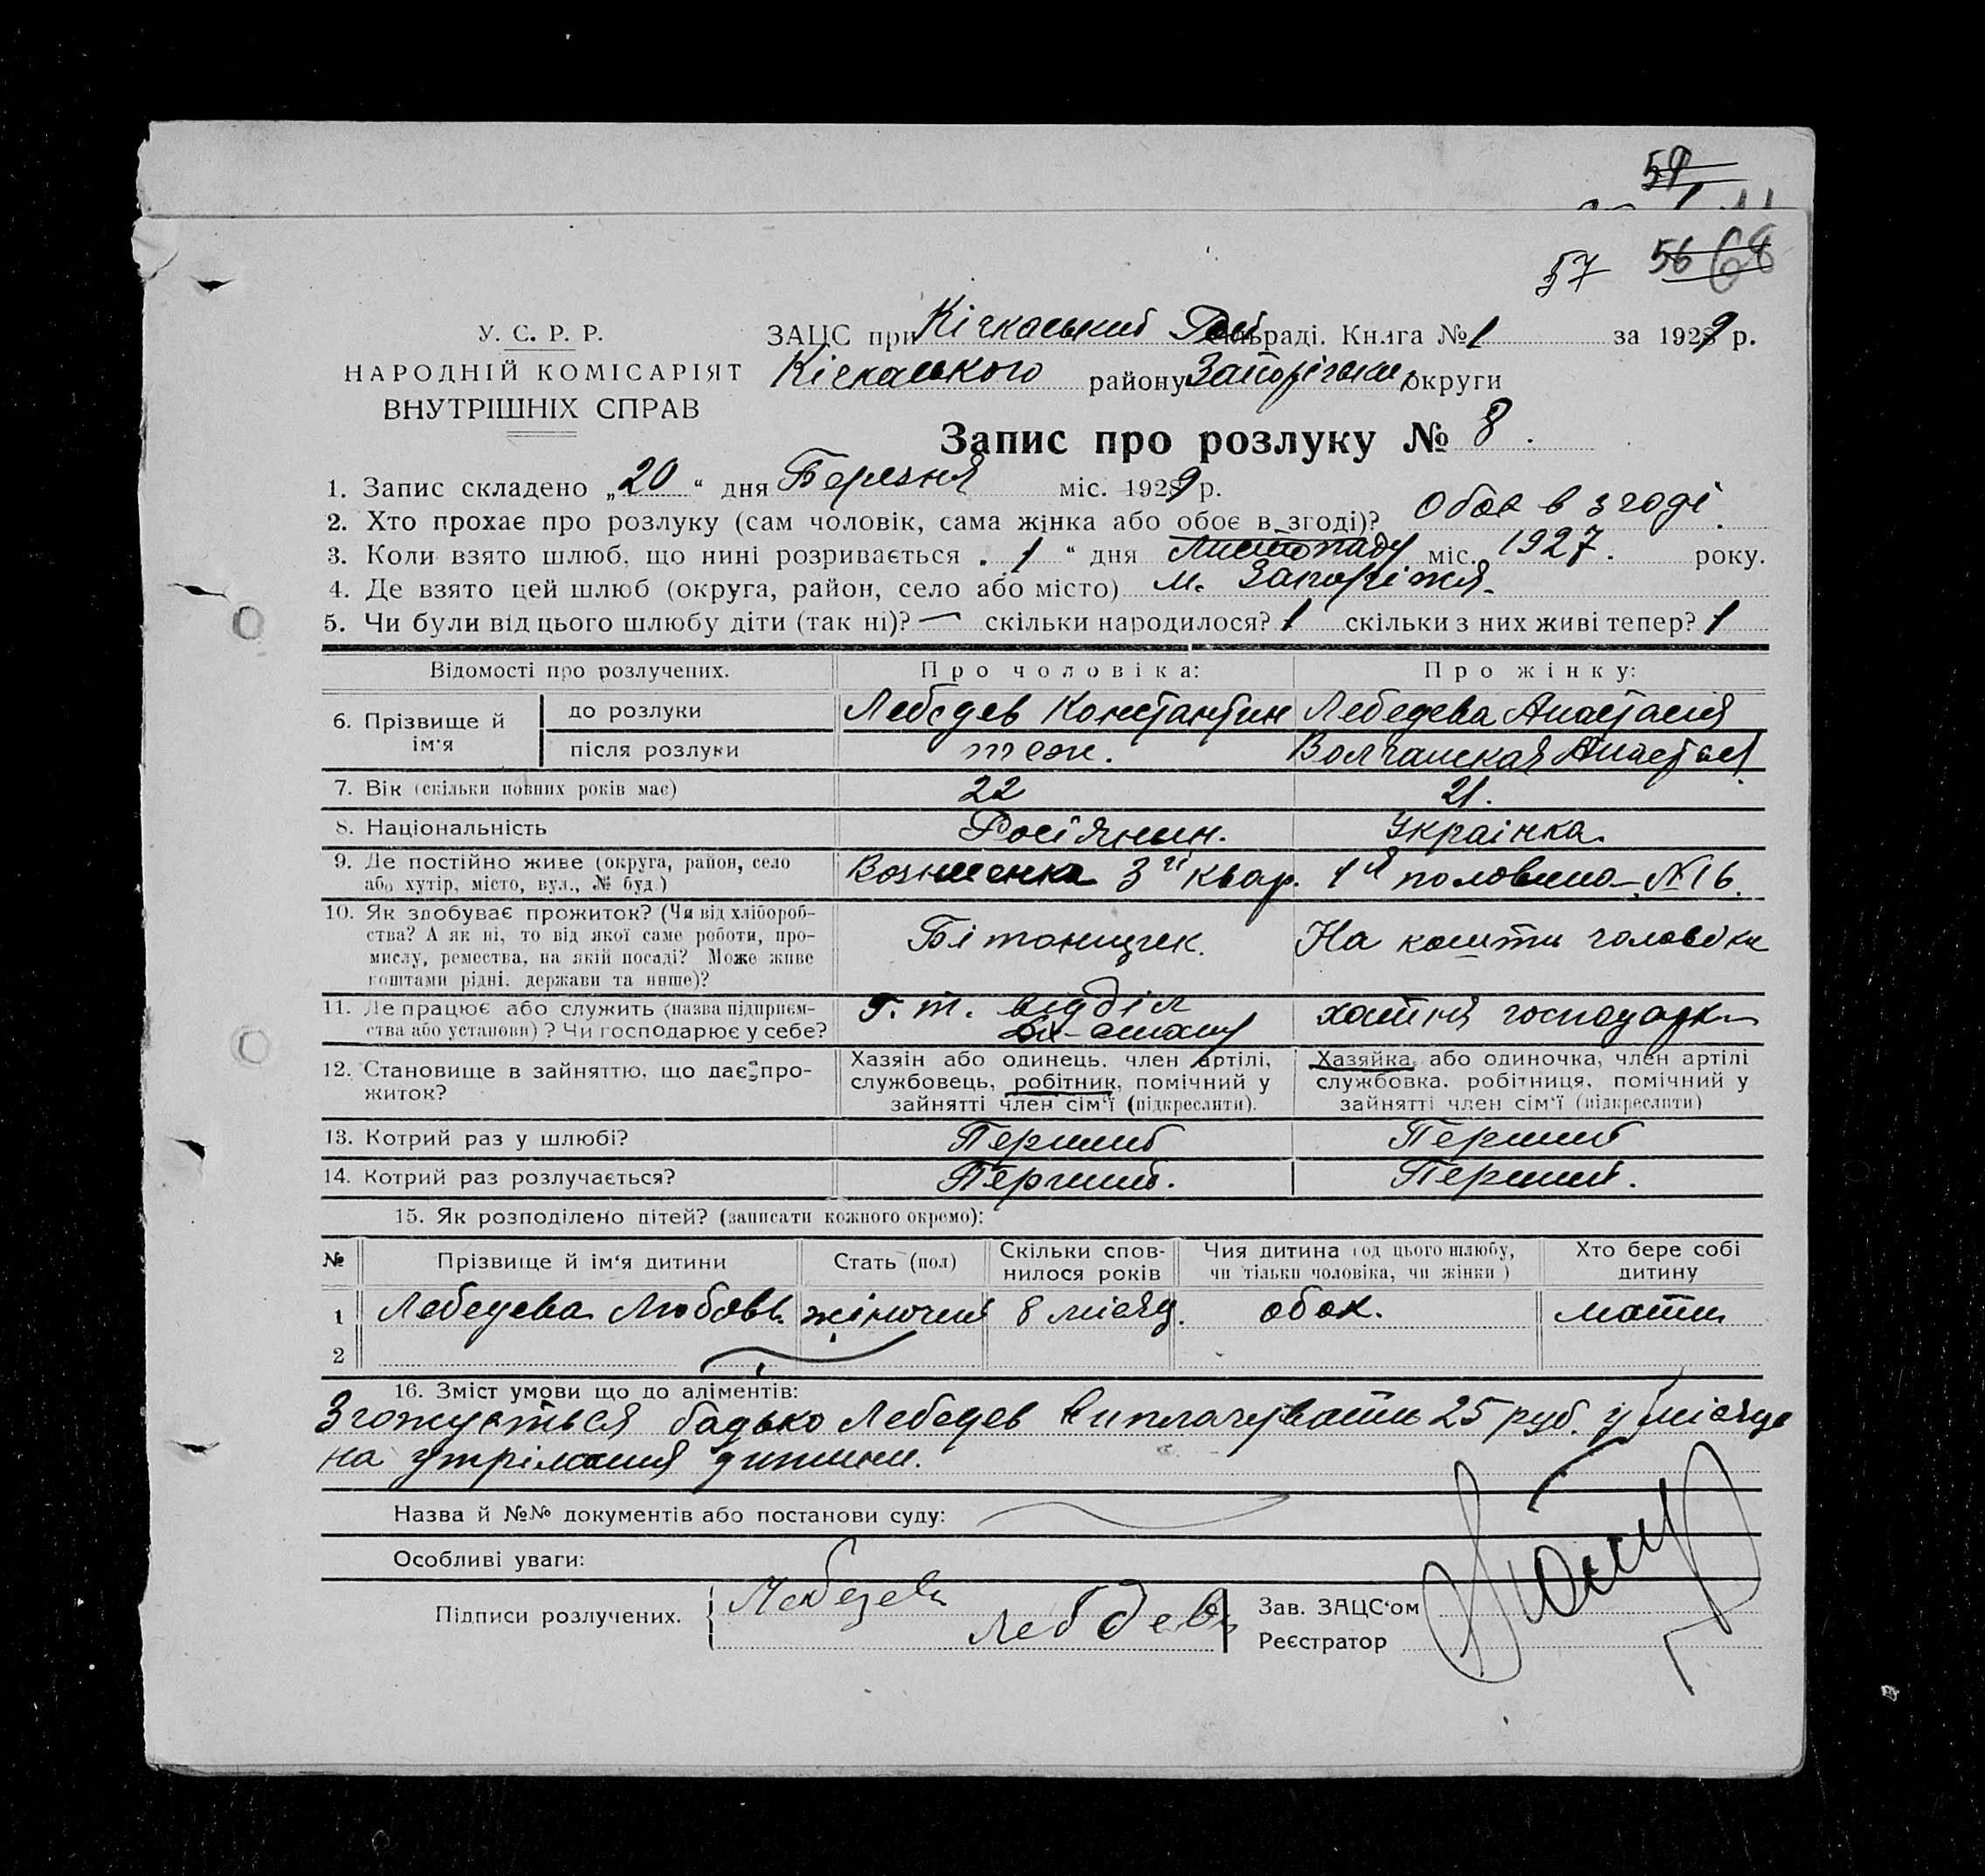 59
57 56 68
У. С. Р. Р.
НАРОДНІЙ КОМІСАРІЯТ
ВНУТРІШНІХ СПРАВ
ЗАЦС при Кічкаський сільраді. Книга № 1 за 1929 р.
Кічкаського району Запоріжськ. округи
Запис про розлуку № 8.
1. Запис складено „20“ дня Березня міс. 1929 р.
2. Хто прохає про розлуку (сам чоловік, сама жінка або обоє в згоді)? Обоє в згоді.
3. Коли взято шлюб, що нині розривається „1“ дня Листопаду міс. 1927. року.
4. Де взято цей шлюб (округа, район, село або місто) м. Запоріжжя.
5. Чи були від цього шлюбу діти (так ні)? — скільки народилося? 1 скільки з них живі тепер? 1
Відомості про розлучених. Про чоловіка: Про жінку:
6. Прізвище й ім'я до розлуки Лебєдев Константин Лебедева Анастасия
після розлуки теж. Волчанская Анастасия
7. Вік (скільки повних років має) 22 21.
8. Національність Росіянин. Украінка.
9. Де постійно живе (округа, район, село
або хутір, місто, вул., № буд.) Вознесенка 3й квар. 1я половина №16.
10. Як здобуває прожиток? (Чи від хлібороб-
ства? А як ні, то від якої саме роботи, про-
мислу, ремества, на якій посаді? Може живе
коштами рідні, держави та инше)? Бітонщик. На кошти чоловіка
11. Де працює або служить (назва підприєм-
ства або установи)? Чи господарює у себе? відділ хатня господарка
12. Становище в зайняттю, що дає про-
житок?
Хазяін або одинець, член артілі,
службовець, робітник, помічний у
зайнятті член сім'ї (підкреслити).
Хазяйка або одиночка, член артілі
службовка, робітниця, помічний у
зайнятті член сім'ї (підкреслити)
13. Котрий раз у шлюбі? Перший Перший
14. Котрий раз розлучається? Перший. Перший.
15. Як розподілено дітей? (записати кожного окремо):
№ Прізвище й ім'я дитини Стать (пол) Скільки спов-
нилося років Чия дитина (од цього шлюбу,
чи тільки чоловіка, чи жінки) Хто бере собі
дитину
1 Лебедева Любовь. жіночий 8 місяц. обох. мати
2
16. Зміст умови що до аліментів:
Згожується батько Лебедев виплачувати 25 руб. у місяць
на утрімання дитини.
Назва й №№ документів або постанови суду:
Особливі уваги:
Підписи розлучених. Лебедев
Лебдева
Зав. ЗАЦС'ом
Реєстратор